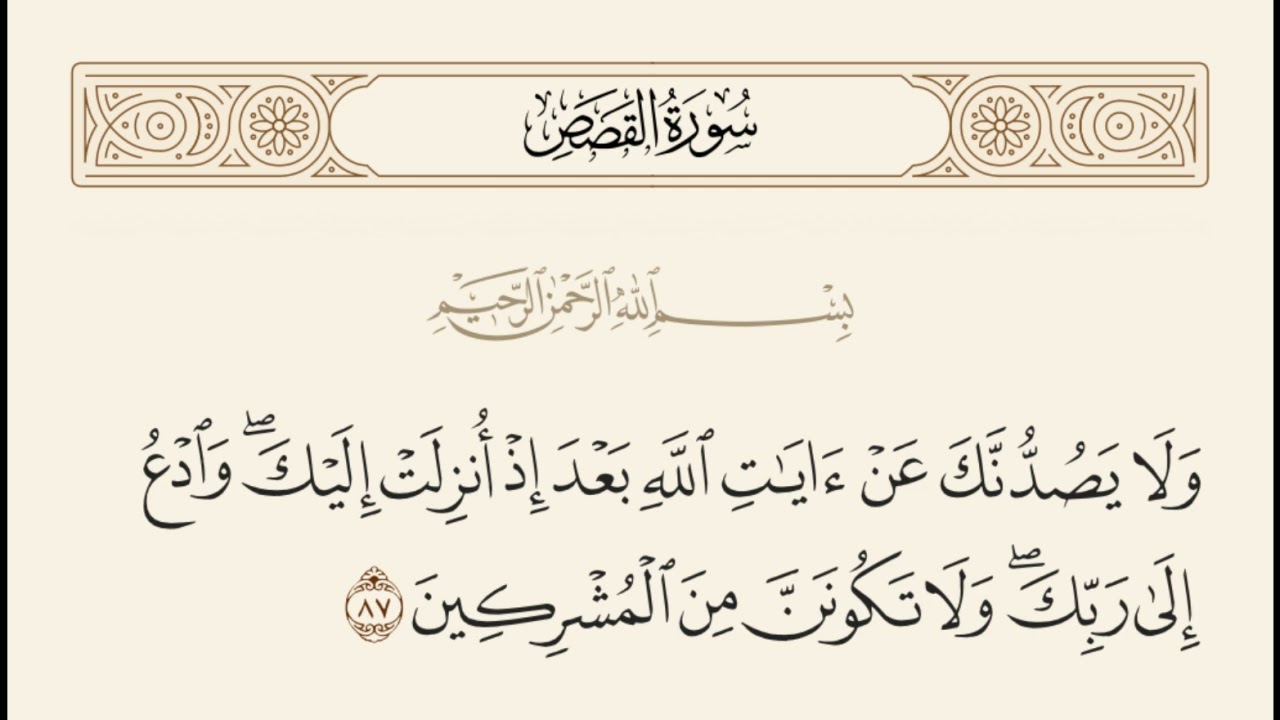 سُورَةُ القَصَصِ
بِسۡمِ ٱللَّهِ ٱلرَّحۡمَٰنِ ٱلرَّحِيمِ
وَلَا يَصُدُّنَّكَ عَنۡ ءَايَٰتِ ٱللَّهِ بَعۡدَ إِذۡ أُنزِلَتۡ إِلَيۡكَۖ وَٱدۡعُ
إِلَىٰ رَبِّكَۖ وَلَا تَكُونَنَّ مِنَ ٱلۡمُشۡرِكِينَ ٨٧